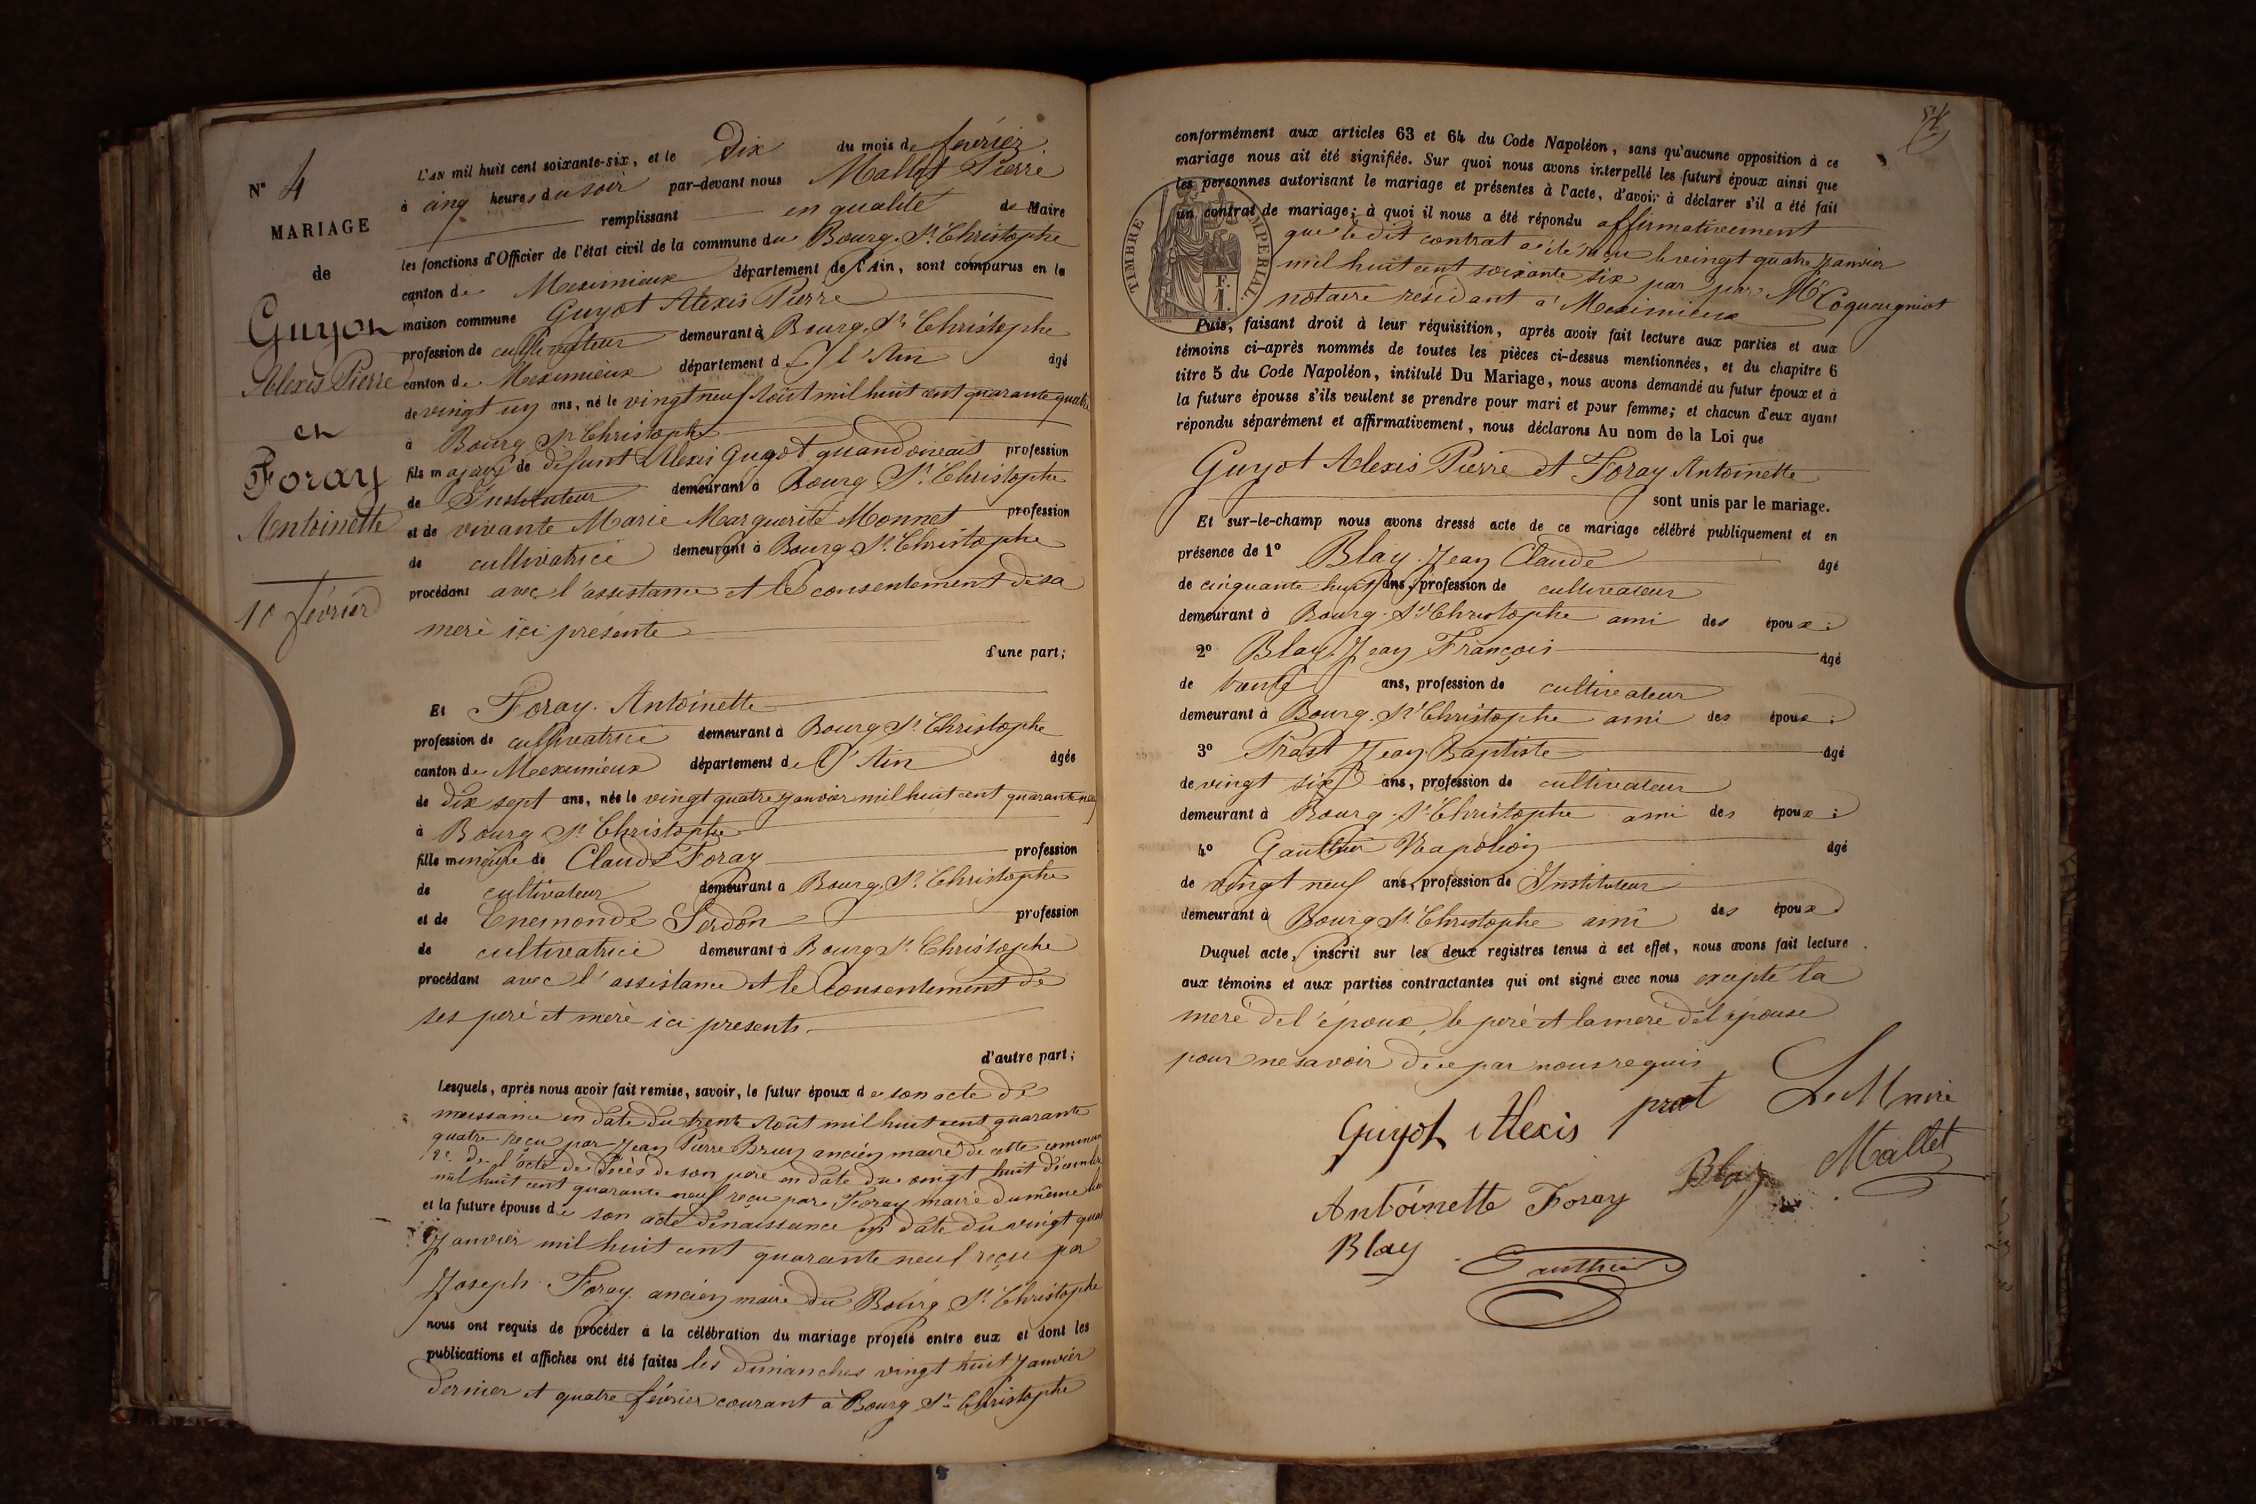 N° 4
MARIAGE
de
Guyot
Alexis Pierre
et
Foray
Antoinette
10 février
L'AN mil huit cent soixante-six, et le Dix du mois de février
à cinq heures du soir par-devant nous Mallet Pierre
remplissant en qualité de Maire
les fonctions d'Officier de l'état civil de la commune du Bourg St Christophe
canton de Meximieux département de l'Ain, sont comparus en la
maison commune Guyot Alexis Pierre
profession de cultivateur demeurant à Bourg St Christophe
canton de Meximieux département de L'Ain âgé
de vingt un ans, né le vingt neuf Août mil huit cent quarante quatre
à Bourg St Christophe
fils majeur de défunt Alexis Guyot quand vivait profession
de Instituteur demeurant à Bourg St Christophe
et de vivante Marie Marguerite Monnet profession
de cultivatrice demeurant à Bourg St Christophe
procédant avec l'assistance et le consentement de sa
mere ici présente
d'une part;
Et Foray Antoinette
profession de cultivatrice demeurant à Bourg St Christophe
canton de Meximieux département de L'Ain âgée
de dix sept ans, née le vingt quatre janvier mil huit cent quarante neuf
à Bourg St Christophe
fille mineure de Claude Foray profession
de cultivateur demeurant à Bourg St Christophe
et de Enemonde Serdon profession
de cultivatrice demeurant à Bourg St Christophe
procédant avec l'assistance et le consentement de
ses peré et meré ici presents
d'autre part;
Lesquels, après nous avoir fait remise, savoir, le futur époux de son acte de
naissance en date du trente Août mil huit cent quarante
quatre reçu par Jean Pierre Brun ancien maire de cette commune
2° de l'acte de décès de son père en date du vingt huit décembre
mil huit cent quarante neuf reçu par Foray maire du même lieu
et la future épouse de son acte de naissance en date du vingt quatre
janvier mil huit cent quarante neuf reçu par
Joseph Foray ancien maire du Bourg St Christophe
nous ont requis de procéder à la célébration du mariage projeté entre eux et dont les
publications et affiches ont été faites les dimanches vingt huit janvier
dernier et quatre février courant à Bourg St Christophe
conformément aux articles 63 et 64 du Code Napoléon, sans qu'aucune opposition à ce
mariage nous ait été signifiée. Sur quoi nous avons interpellé les futurs époux ainsi que
les personnes autorisant le mariage et présentes à l'acte, d'avoir à déclarer s'il a été fait
un contrat de mariage; à quoi il nous a été répondu affirmativement
que le dit contrat a été reçu le vingt quatre janvier
mil huit cent soixante six par par Me Coqueugniot
notaire résidant à Meximieux
TIMBRE IMPERIAL.
Puis, faisant droit à leur réquisition, après avoir fait lecture aux parties et aux
témoins ci-après nommés de toutes les pièces ci-dessus mentionnées, et du chapitre 6
titre 5 du Code Napoléon, intitulé Du Mariage, nous avons demandé au futur époux et à
la future épouse s'ils veulent se prendre pour mari et pour femme; et chacun d'eux ayant
répondu séparément et affirmativement, nous déclarons Au nom de la Loi que
Guyot Alexis Pierre et Foray Antoinette
sont unis par le mariage.
Et sur-le-champ nous avons dressé acte de ce mariage célébré publiquement et en
présence de 1° Blay Jean Claude âgé
de cinquante huit ans, profession de cultivateur
demeurant à Bourg St Christophe ami des époux;
2° Blay Jean François âgé
de trente ans, profession de cultivateur
demeurant à Bourg St Christophe ami des époux;
3° Prost Jean Baptiste âgé
de vingt six ans, profession de cultivateur
demeurant à Bourg St Christophe ami des époux;
4° Gauthier Napoléon âgé
de vingt neuf ans, profession de Instituteur
demeurant à Bourg St Christophe ami des époux
Duquel acte, inscrit sur les deux registres tenus à cet effet, nous avons fait lecture
aux témoins et aux parties contractantes qui ont signé avec nous excepté la
meré de l'époux, le peré et la mere de l'épouse
pour ne savoir de ce par nous requis
Guyot Alexis prost Le Maire
Antoinette Foray Blay Mallet
Blay Gauthier